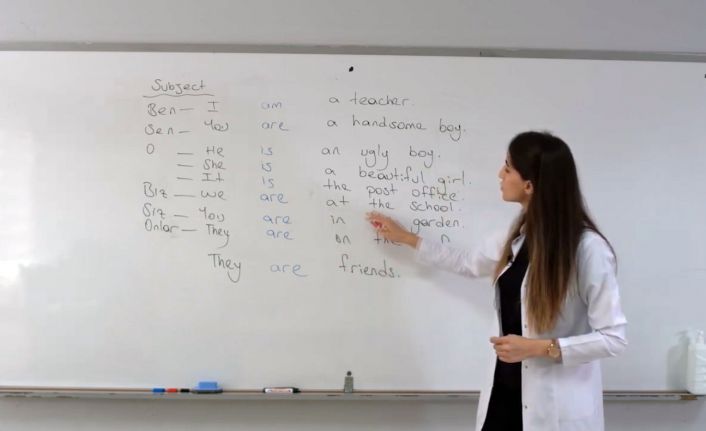 Subject
Ben — I am a teacher.
Sen — You are a handsome boy.
O — He is an ugly boy.
— She is a beautiful girl.
— It is the post office.
Biz — We are at the school.
Siz — You are in garden.
Onlar — They are on the
They are friends.